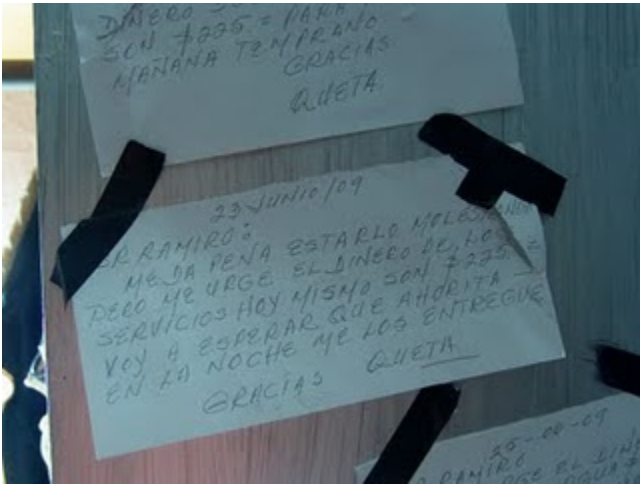 DINERO
SON $225= PARA
MAÑANA TEMPRANO
GRACIAS
QUETA.
23 JUNIO/09
SR. RAMIRO:
ME DA PENA ESTARLO MOLESTANDO
PERO ME URGE EL DINERO DE LOS
SERVICIOS HOY MISMO SON $225=
VOY A ESPERAR QUE AHORITA
EN LA NOCHE ME LOS ENTREGUE
GRACIAS QUETA
25-06-09
RAMIRO
URGE EL DIN